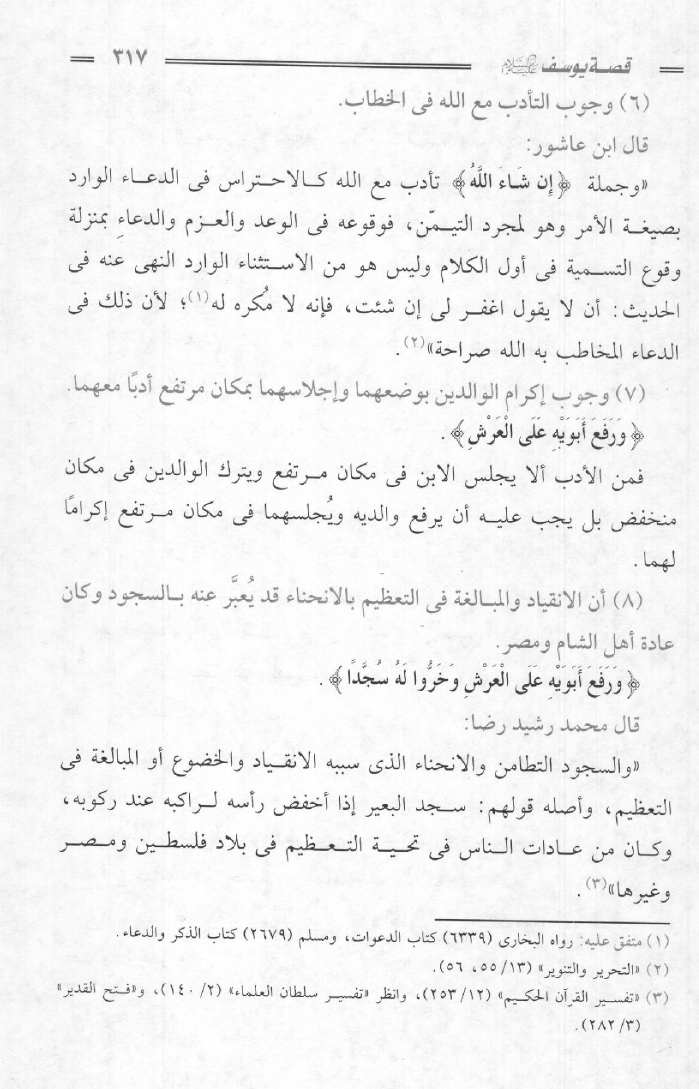 قصة يوسف عليه السلام ٣١٧
(٦) وجوب التأدب مع الله فى الخطاب.
قال ابن عاشور:
«وجملة ﴿إِن شَاءَ اللَّهُ﴾ تأدب مع الله كالاحتراس فى الدعاء الوارد
بصيغة الأمر وهو لمجرد التيمّن، فوقوعه فى الوعد والعزم والدعاءِ بمنزلة
وقوع التسمية فى أول الكلام وليس هو من الاستثناء الوارد النهى عنه فى
الحديث: أن لا يقول اغفر لى إن شئت، فإنه لا مُكره له(١)؛ لأن ذلك فى
الدعاء المخاطب به الله صراحة»(٢).
(٧) وجوب إكرام الوالدين بوضعهما وإجلاسهما بمكان مرتفع أدبًا معهما.
﴿وَرَفَعَ أَبَوَيْهِ عَلَى الْعَرْشِ﴾.
فمن الأدب ألا يجلس الابن فى مكان مرتفع ويترك الوالدين فى مكان
منخفض بل يجب عليه أن يرفع والديه ويُجلسهما فى مكان مرتفع إكرامًا
لهما.
(٨) أن الانقياد والمبالغة فى التعظيم بالانحناء قد يُعبَّر عنه بالسجود وكان
عادة أهل الشام ومصر.
﴿وَرَفَعَ أَبَوَيْهِ عَلَى الْعَرْشِ وَخَرُّوا لَهُ سُجَّدًا﴾.
قال محمد رشيد رضا:
«والسجود التطامن والانحناء الذى سببه الانقياد والخضوع أو المبالغة فى
التعظيم، وأصله قولهم: سجد البعير إذا أخفض رأسه لراكبه عند ركوبه،
وكان من عادات الناس فى تحية التعظيم فى بلاد فلسطين ومصر
وغيرها»(٣).
(١) متفق عليه: رواه البخارى (٦٣٣٩) كتاب الدعوات، ومسلم (٢٦٧٩) كتاب الذكر والدعاء.
(٢) «التحرير والتنوير» (١٣/ ٥٥، ٥٦).
(٣) «تفسير القرآن الحكيم» (١٢/ ٢٥٣)، وانظر «تفسير سلطان العلماء» (٢/ ١٤٠)، و«فتح القدير»
(٣/ ٢٨٢).